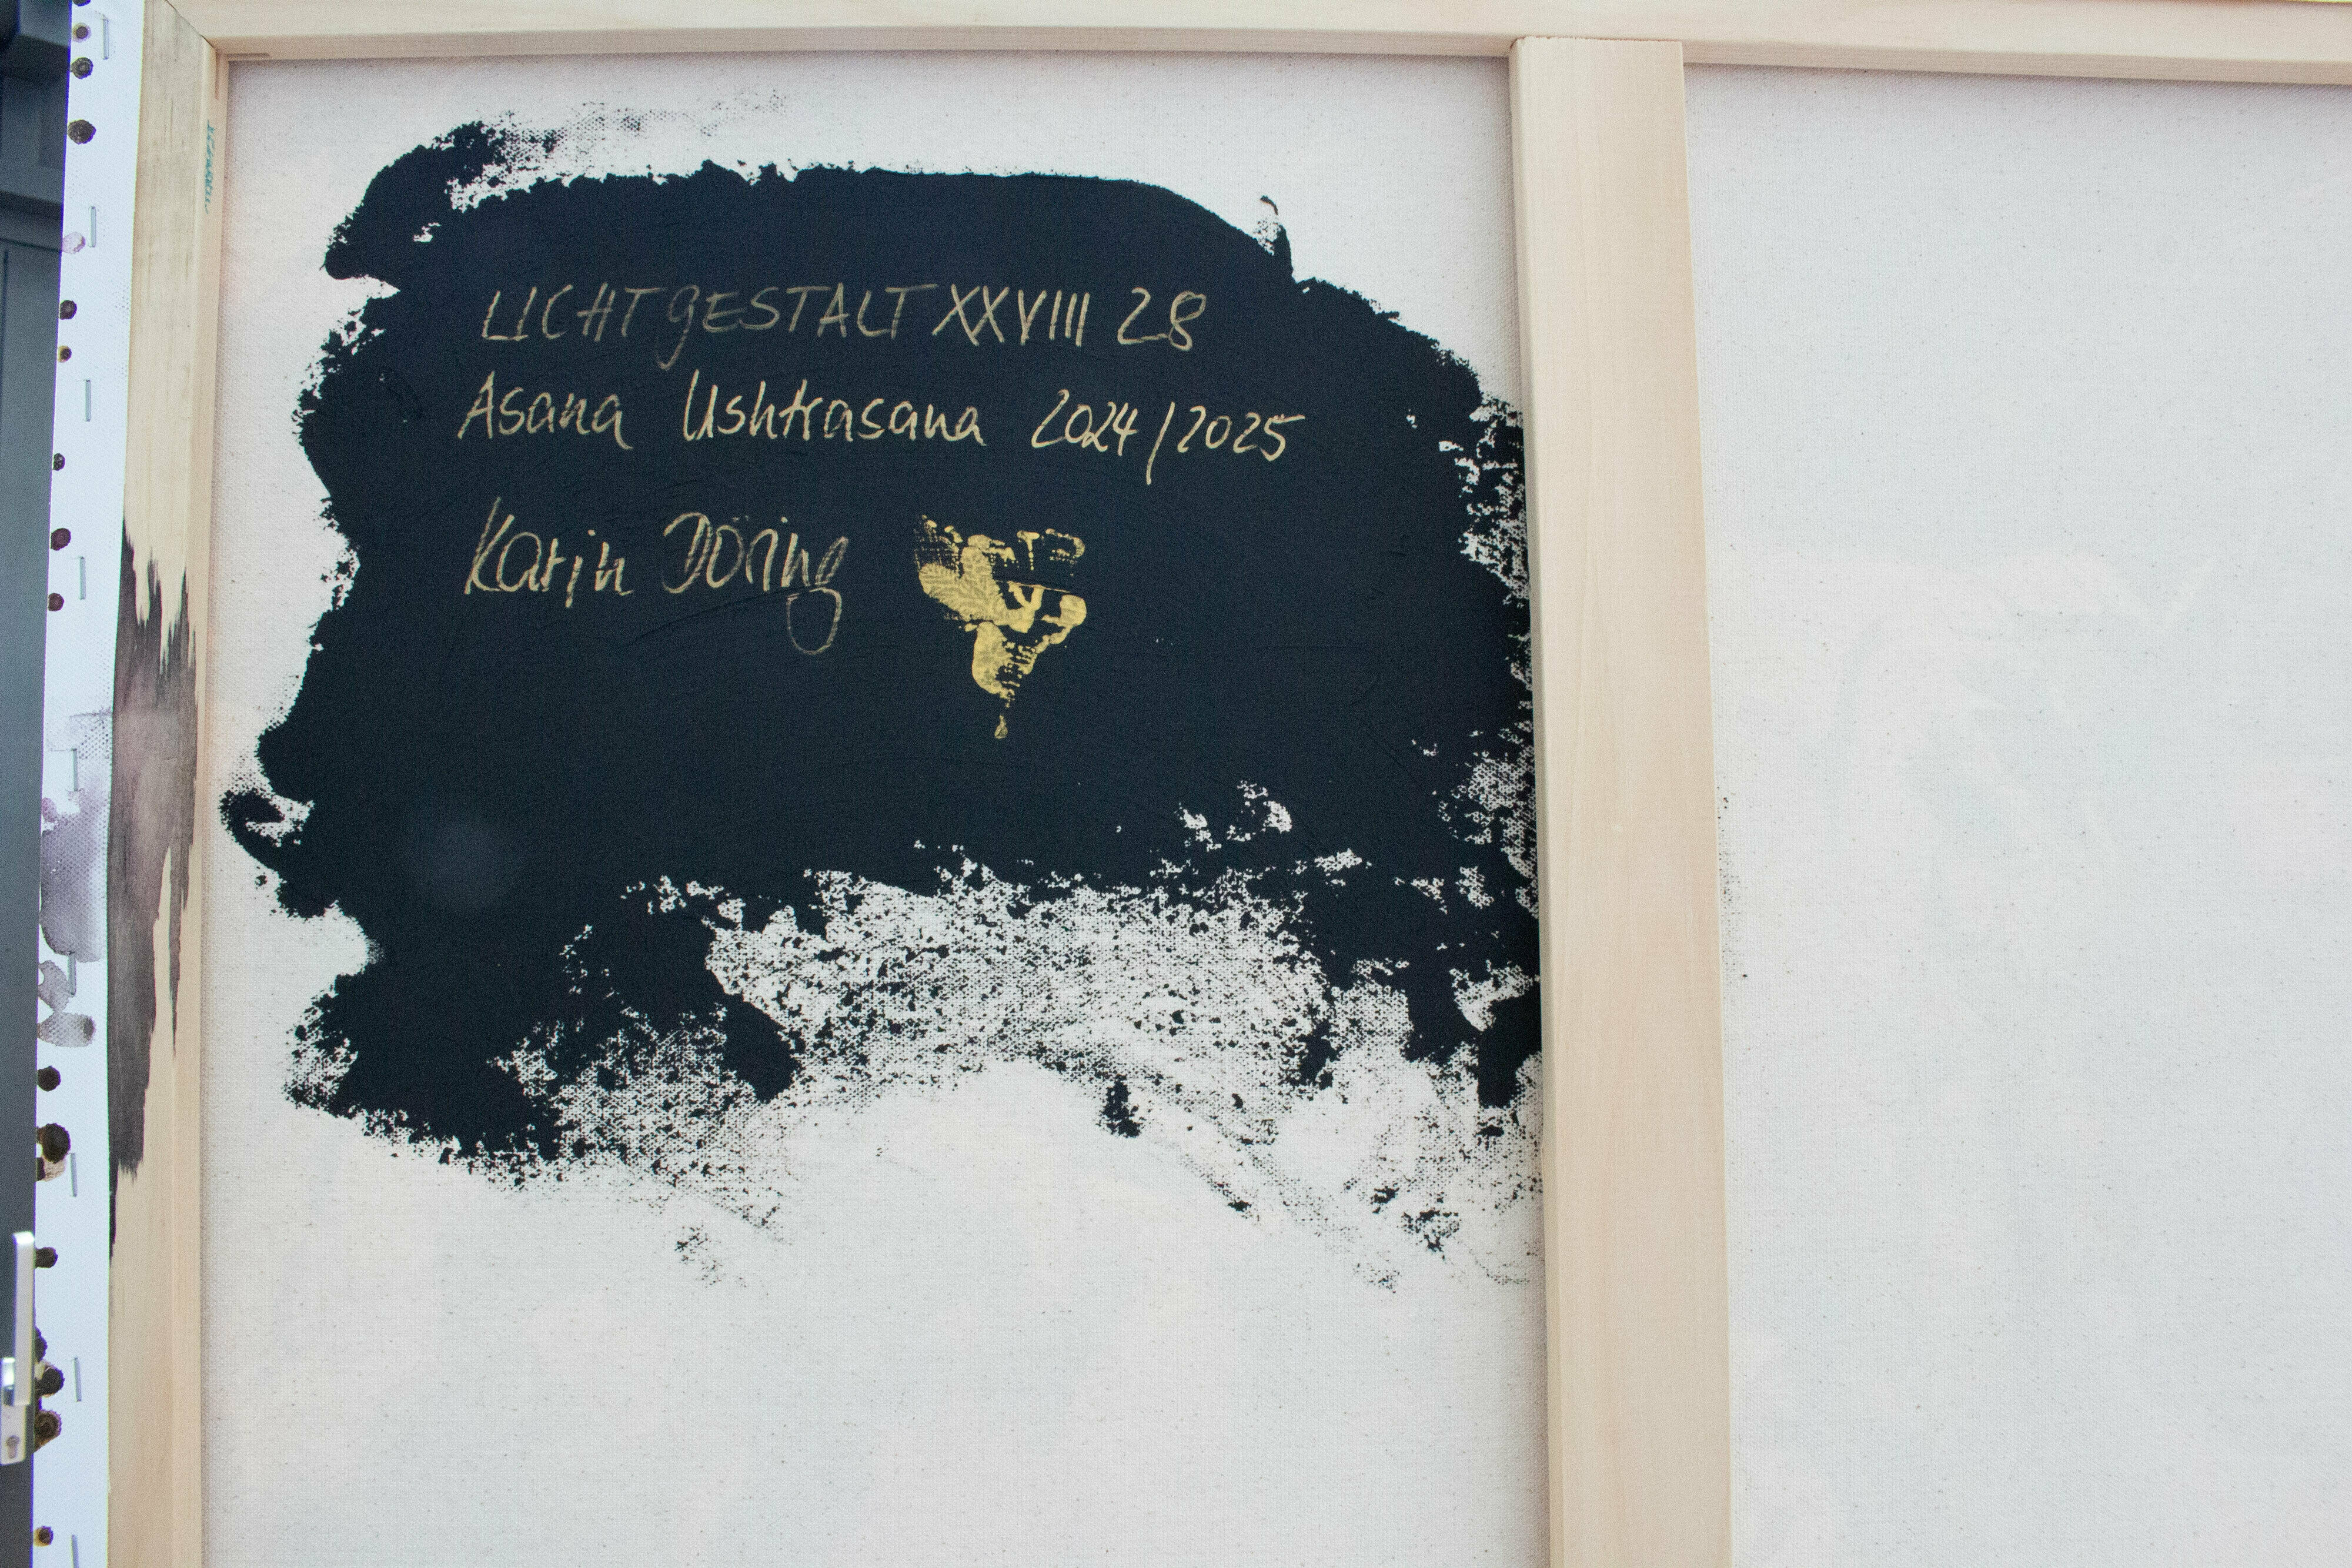 LICHTGESTALT XXVIII 28
Asana Ushtrasana 2024/2025
Karin Döring